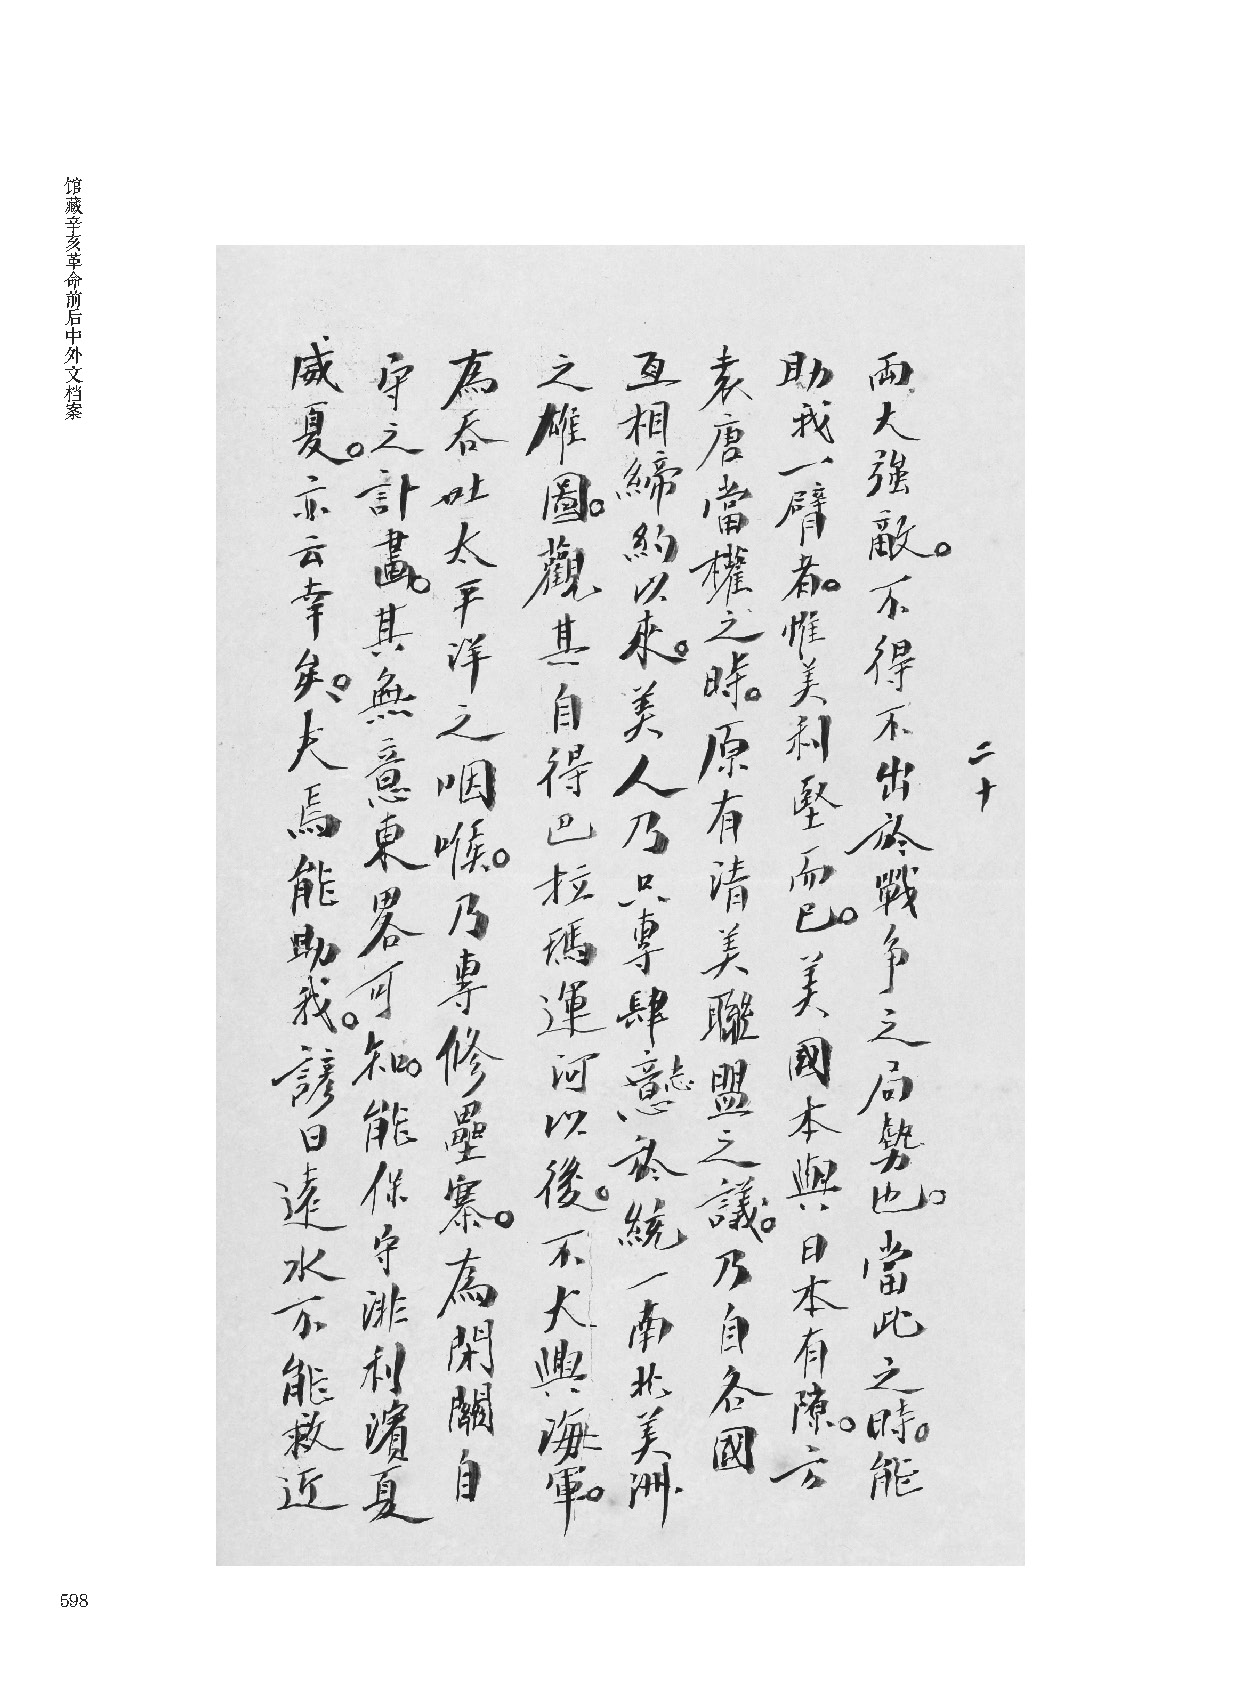 馆藏辛亥革命前后中外文档案
二十
兩大強敵。不得不出於戰争之局勢也。當此之時。能
助我一臂者。惟美利堅而已。美國本與日本有隙。方
袁唐當權之時。原有清美聯盟之議。乃自各國
互相締約以來。美人乃只專肆意志於統一南北美洲
之雄圖。觀其自得巴拉瑪運河以後。不大興海軍。
為吞吐太平洋之咽喉。乃專修壘寨。為閉關自
守之計畫。其無意東畧可知。能保守渄利濱夏
威夏。亦云幸矣。夫焉能助我。諺曰遠水不能救近
598